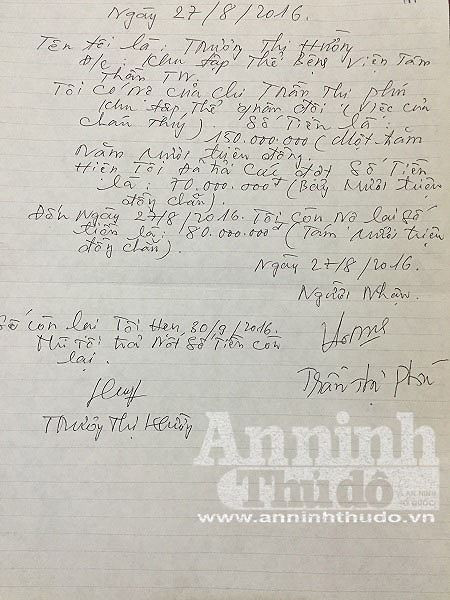 Ngày 27/8/2016.
Tên tôi là: Trương Thị Hường
Đ/c: Khu tập Thể Bệnh Viện Tâm
Thần TW.
Tôi Có Nợ của chị Trần Thị phú
Khu tập Thể quân đội (Việc của
cháu Thuỷ) Số Tiền là:
150.000.000 (Một trăm
Năm mươi triệu đồng.
Hiện Tôi Đã trả Các đợt Số Tiền
là: 70.000.000đ (Bảy mươi triệu
đồng chẵn).
Đến Ngày 27/8/2016. Tôi còn nợ lại Số
tiền là: 80.000.000đ (Tám mươi triệu
đồng chẵn).
Ngày 27/8/2016.
Người Nhận.
Số còn lại Tôi Hẹn 30/9/2016.
Tôi trả Nốt Số Tiền còn
lại.
Trần Thị Phú
Trương Thị Hường
An ninh
Thủ đô
www.anninhthudo.vn